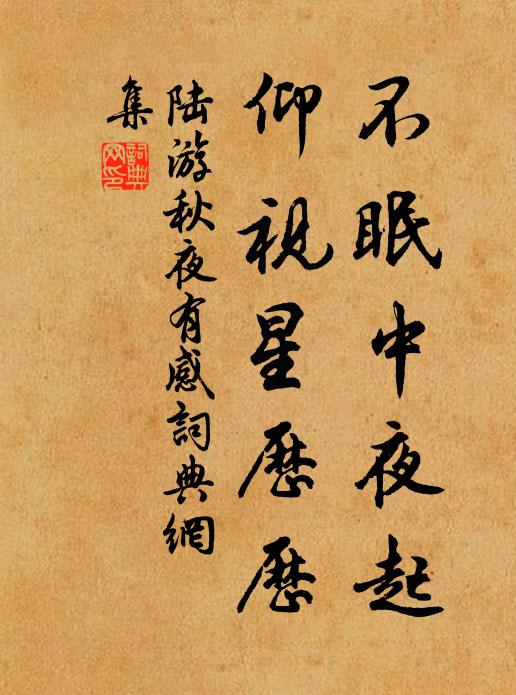 不眠中夜起
仰視星歷歷
陆游秋夜有感詞典網
集
詞典网印